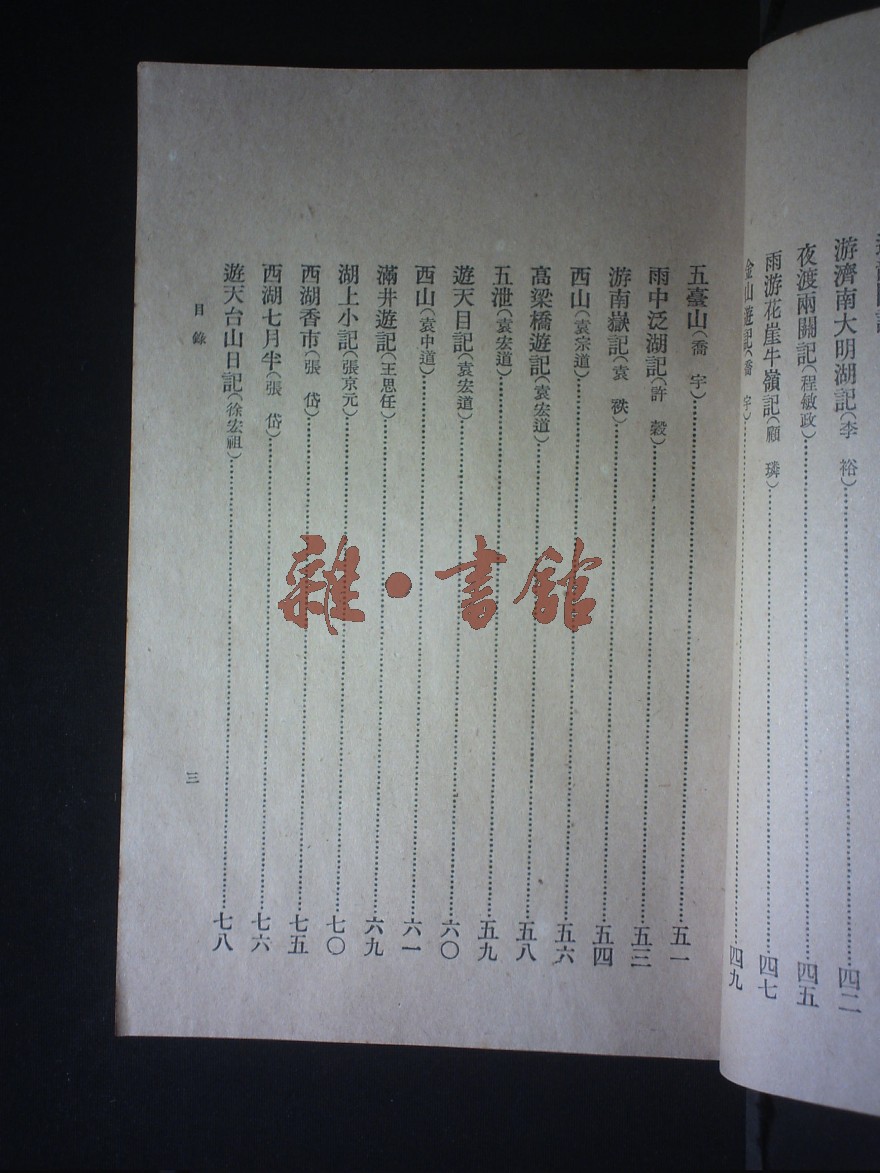 游濟南大明湖記(李　裕)………四二
夜渡兩關記(程敏政)………四五
雨游花崖牛嶺記(顧　璘)………四七
金山遊記(喬　宇)………四九
五臺山(喬　宇)………五一
雨中泛湖記(許　穀)………五三
游南嶽記(袁　袠)………五四
西山(袁宗道)………五六
高梁橋遊記(袁宏道)………五八
五泄(袁宏道)………五九
遊天目記(袁宏道)………六〇
西山(袁中道)………六一
滿井遊記(王思任)………六九
湖上小記(張京元)………七〇
西湖香市(張　岱)………七五
西湖七月半(張　岱)………七六
遊天台山日記(徐宏祖)………七八
目錄
三
雜·書館